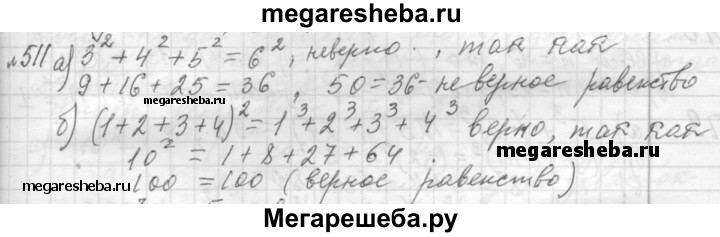 megaresheba.ru
№511 а) 3² + 4² + 5² = 6², неверно., так как
9 + 16 + 25 = 36, 50 = 36 - неверное равенство
megaresheba.ru
б) (1+2+3+4)² = 1³ + 2³ + 3³ + 4³ верно, так как
10² = 1 + 8 + 27 + 64.
megaresheba.ru
megaresheba.ru
100 = 100 (верное равенство)
Мегарешеба.ру